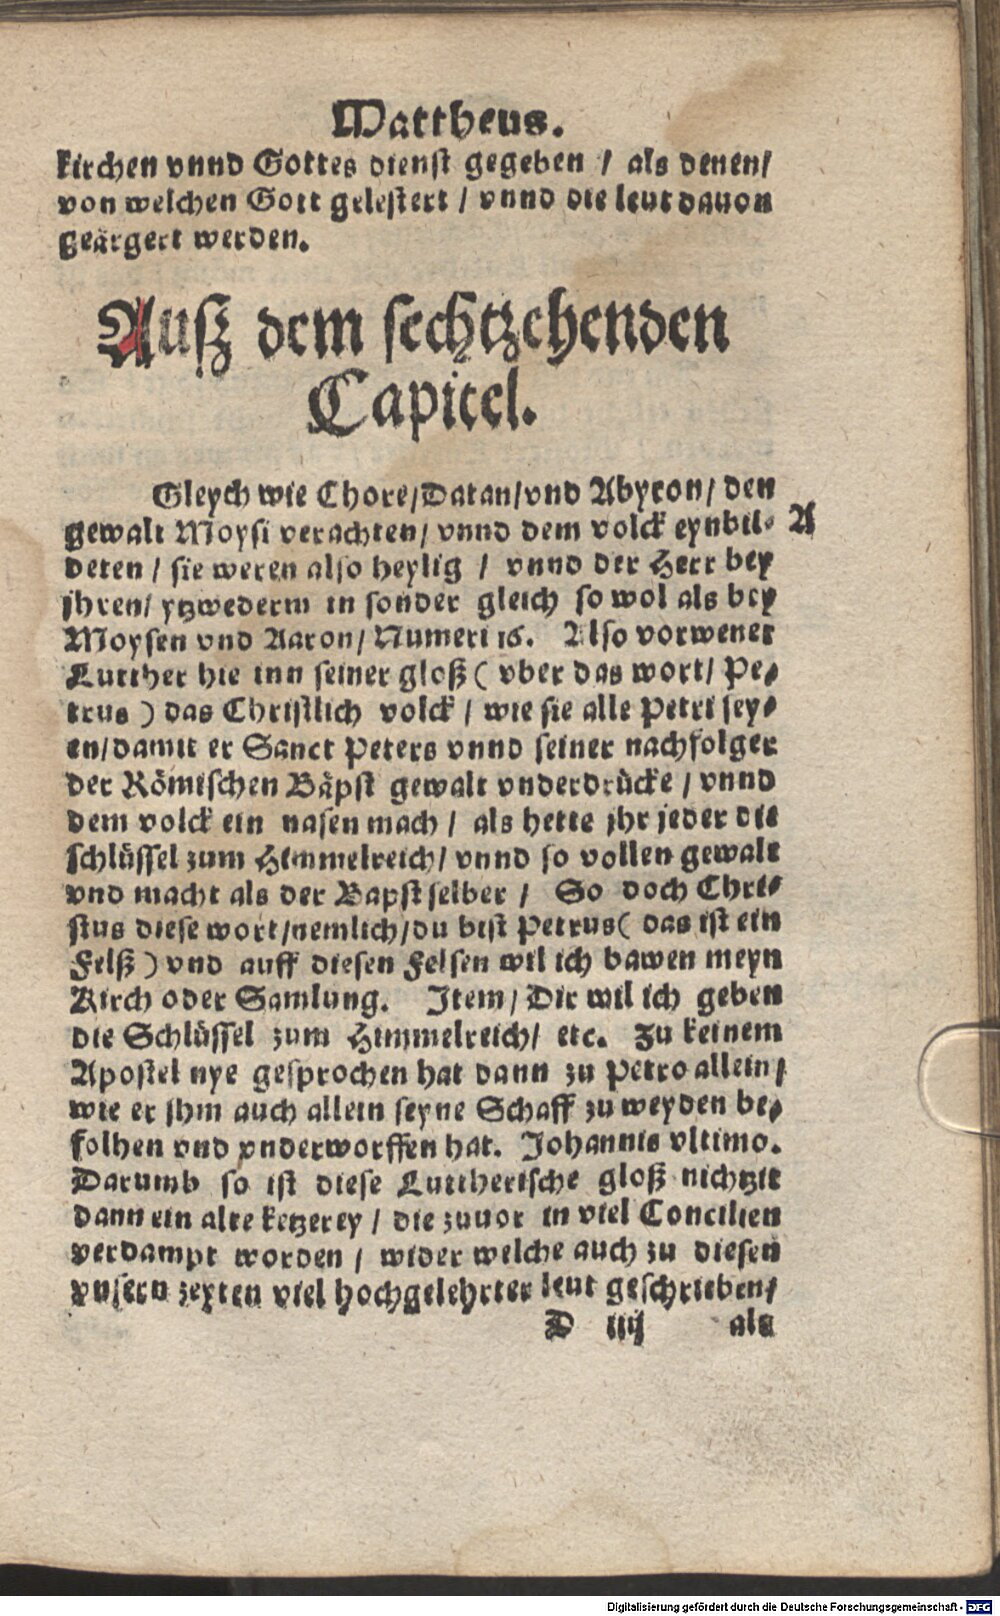 Mattheus.
kirchen vnnd Gottes dienst gegeben / als denen/
von welchen Gott gelestert / vnnd die leut dauon
geärgert werden.
Auß dem sechtzehenden
Capitel.
Gleych wie Chore/Datan/vnd Abyron/ den
gewalt Moysi verachten/ vnnd dem volck eynbil-
A
deten / sie weren also heylig / vnnd der Herr bey
jhren/ ytzwederm in sonder gleich so wol als bey
Moysen vnd Aaron/ Numeri 16. Also vorwenet
Lutther hie inn seiner gloß ( vber das wort/ Pe-
trus ) das Christlich volck / wie sie alle Petri sey-
en/damit er Sanct Peters vnnd seiner nachfolger
der Römischen Bäpst gewalt vnderdrücke / vnnd
dem volck ein nasen mach / als hette jhr jeder die
schlüssel zum Himmelreich/ vnnd so vollen gewalt
vnd macht als der Bapst selber / So doch Chri-
stus diese wort/nemlich/du bist Petrus( das ist ein
Felß ) vnd auff diesen Felsen wil ich bawen meyn
Kirch oder Samlung. Item/ Dir wil ich geben
die Schlüssel zum Himmelreich/ etc. Zu keinem
Apostel nye gesprochen hat dann zu Petro allein/
wie er jhm auch allein seyne Schaff zu weyden be-
folhen vnd vnderworffen hat. Johannis vltimo.
Darumb so ist diese Luttherische gloß nichtzit
dann ein alte ketzerey / die zuuor in viel Concilien
verdampt worden / wider welche auch zu diesen
vnsern zeyten viel hochgelehrter leut geschrieben/
D iiij als
Digitalisierung gefördert durch die Deutsche Forschungsgemeinschaft - DFG